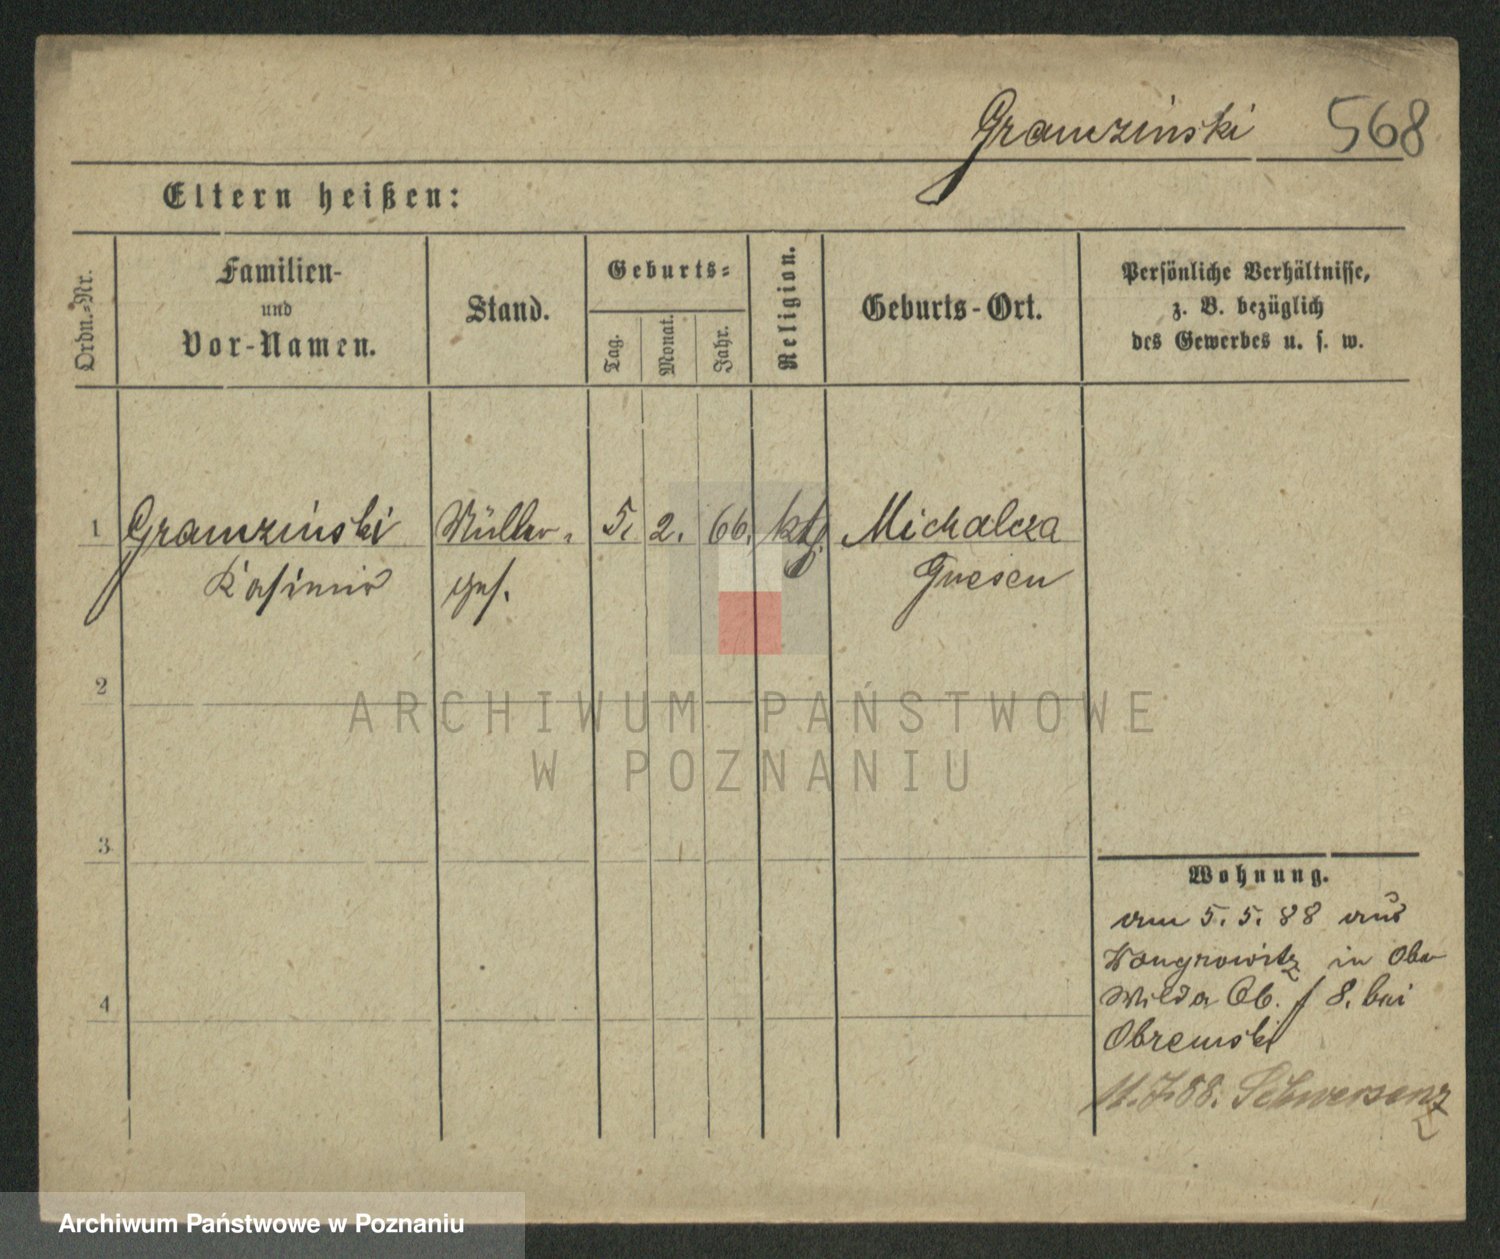 Gramzinski 568
Eltern heißen:
Ordn.-Nr.
Familien-
und
Vor-Namen.
Stand.
Geburts-
Tag.
Monat.
Jahr.
Religion.
Geburts-Ort.
Persönliche Verhältnisse,
z. B. bezüglich
des Gewerbes u. s. w.
1 Gramzinski Müller- 5. 2. 66. kth. Michalcza
Kasimir ges. Gnesen
2
ARCHIWUM PAŃSTWOWE
W POZNANIU
3
Wohnung.
am 5. 5. 88 aus
Wongrowitz in Ober
Wilda 8. bei
Obremski
11.7.88. Schwersenz
4
Archiwum Państwowe w Poznaniu